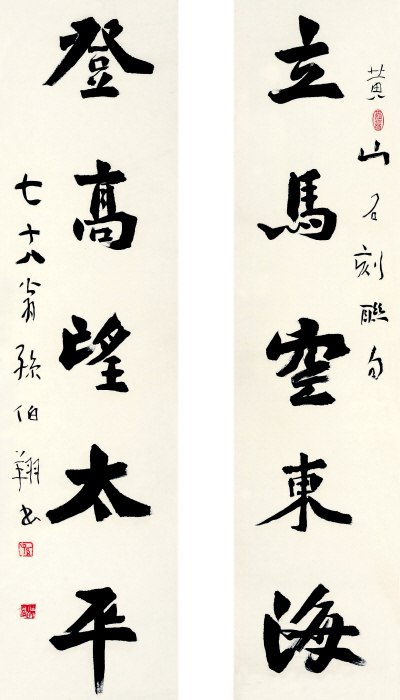 黄山石刻聯句
立馬空東海
登高望太平
七十八翁孫伯翔书